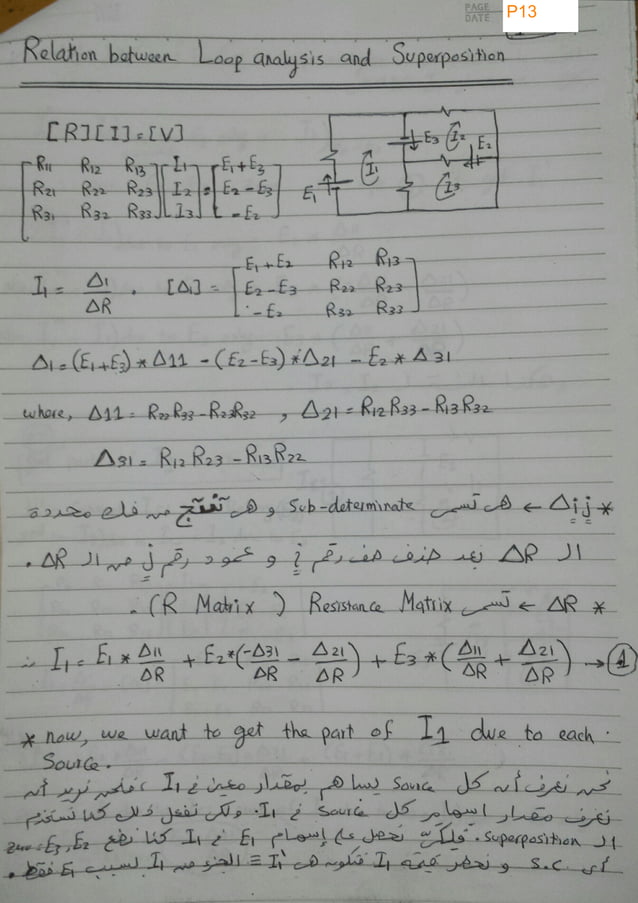 PAGE
DATE
P13
Relation between Loop analysis and Superposition
[R][I]=[V]
[R11 R12 R13] [I1] = [E1+E3]
[R21 R22 R23] [I2] [E2-E3]
[R31 R32 R33] [I3] [-E2]
E1 I1 E3 I2 E2 I3
I1 = Δ1/ΔR . [Δ1] = [E1+E2 R12 R13]
[E2-E3 R22 R23]
[-E2 R32 R33]
Δ1=(E1+E3)*Δ11 -(E2-E3)*Δ21 -E2*Δ31
where, Δ11= R22R33-R23R32 , Δ21=R12R33-R13R32
Δ31= R12R23-R13R22
* Δij ← هى تسمى Sub-determinate و هى تنتج من فك محددة
الـ ΔR بعد حذف صف رقم i و عمود رقم j من الـ ΔR .
* ΔR ← تسمى Resistance Matrix (R Matrix) .
∴ I1= E1*Δ11/ΔR + E2*(-Δ31/ΔR - Δ21/ΔR) + E3*(Δ11/ΔR + Δ21/ΔR) → 1
* now, we want to get the part of I1 due to each
Source.
نحن نعرف أنه كل Source يساهم بمقدار معين فى I1 ، فنحن نريد أنه
نعرف مقدار إسهام كل Source فى I1. ولكى نفعل ذلك كنا نستخدم
الـ superposition. فلكى نحصل على إسهام E1 فى I1 كنا نضع E3, E2 = zero
أى S.C. و نحصر قيمة I1 فتكون هى I1' ≡ الجزء من I1 بسبب E1 فقط .